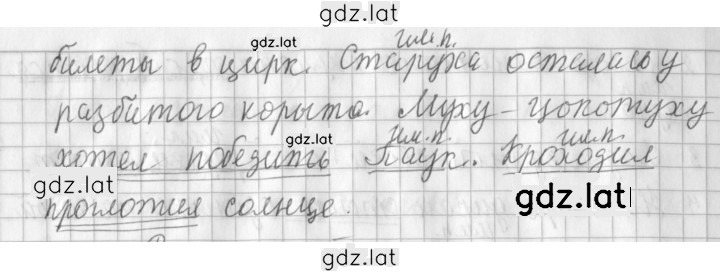 gdz.lat
им.п.
gdz.lat
билеты в цирк. Старуха осталась у
разбитого корыта. Муху-цокотуху
gdz.lat им.п. им.п.
хотел победить Паук. Крокодил
gdz.lat gdz.lat
проглотил солнце.
gdz.lat